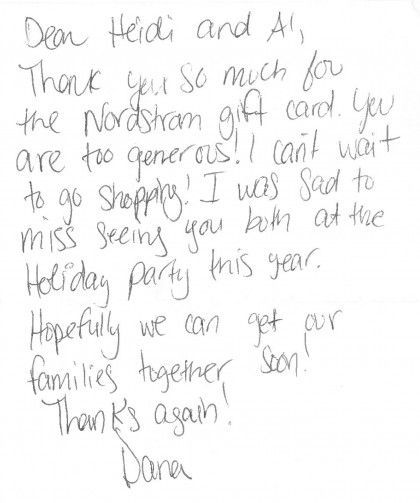 Dear Heidi and Al,
Thank you so much for
the Nordstrom gift card. You
are too generous! I can't wait
to go shopping! I was sad to
miss seeing you both at the
Holiday party this year.
Hopefully we can get our
families together soon!
Thanks again!
Dana